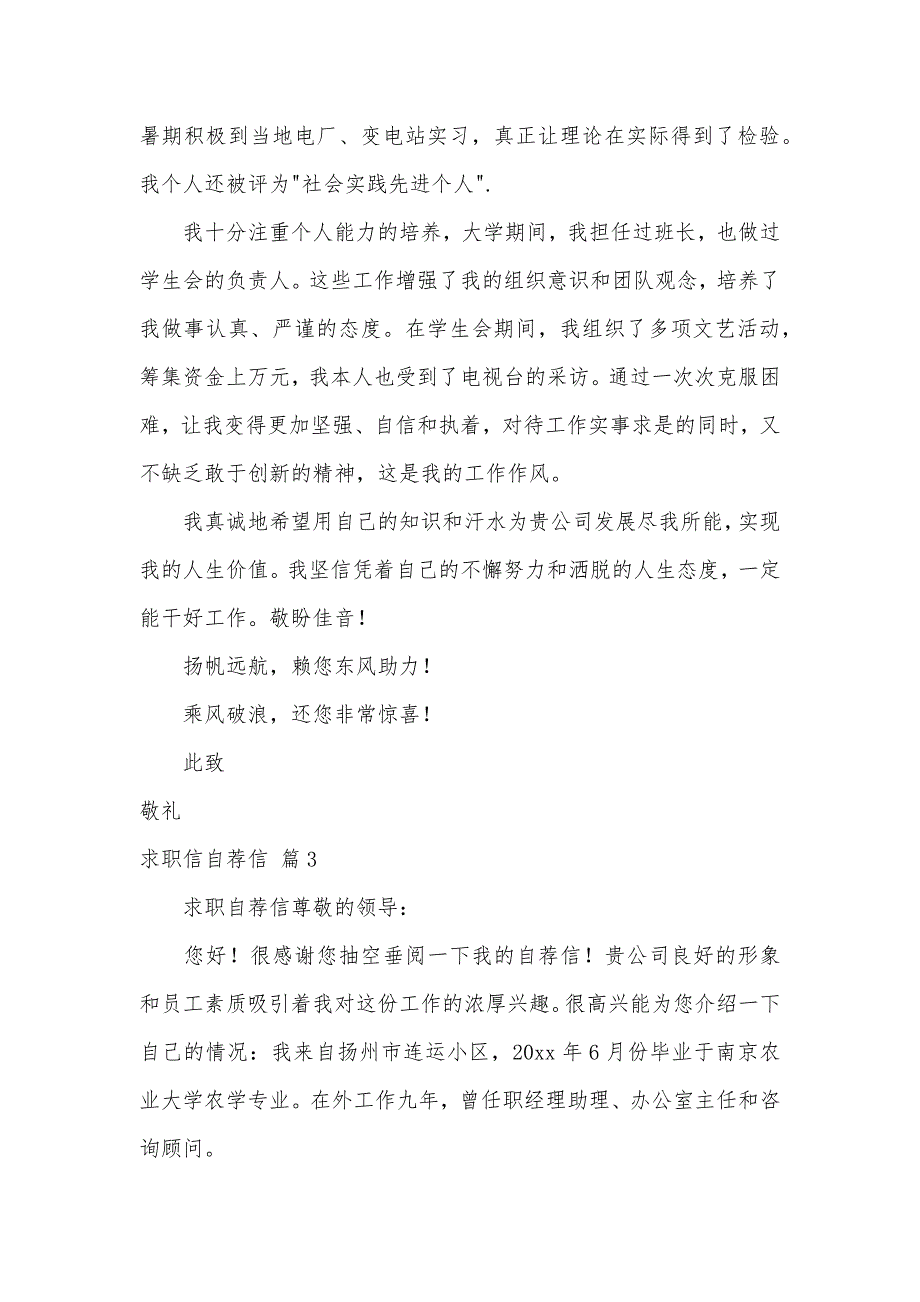 暑期积极到当地电厂、变电站实习，真正让理论在实际得到了检验。
我个人还被评为"社会实践先进个人".
我十分注重个人能力的培养，大学期间，我担任过班长，也做过
学生会的负责人。这些工作增强了我的组织意识和团队观念，培养了
我做事认真、严谨的态度。在学生会期间，我组织了多项文艺活动，
筹集资金上万元，我本人也受到了电视台的采访。通过一次次克服困
难，让我变得更加坚强、自信和执着，对待工作实事求是的同时，又
不缺乏敢于创新的精神，这是我的工作作风。
我真诚地希望用自己的知识和汗水为贵公司发展尽我所能，实现
我的人生价值。我坚信凭着自己的不懈努力和洒脱的人生态度，一定
能干好工作。敬盼佳音！
扬帆远航，赖您东风助力！
乘风破浪，还您非常惊喜！
此致
敬礼
求职信自荐信 篇3
求职自荐信尊敬的领导：
您好！很感谢您抽空垂阅一下我的自荐信！贵公司良好的形象
和员工素质吸引着我对这份工作的浓厚兴趣。很高兴能为您介绍一下
自己的情况：我来自扬州市连运小区，20xx 年 6 月份毕业于南京农
业大学农学专业。在外工作九年，曾任职经理助理、办公室主任和咨
询顾问。